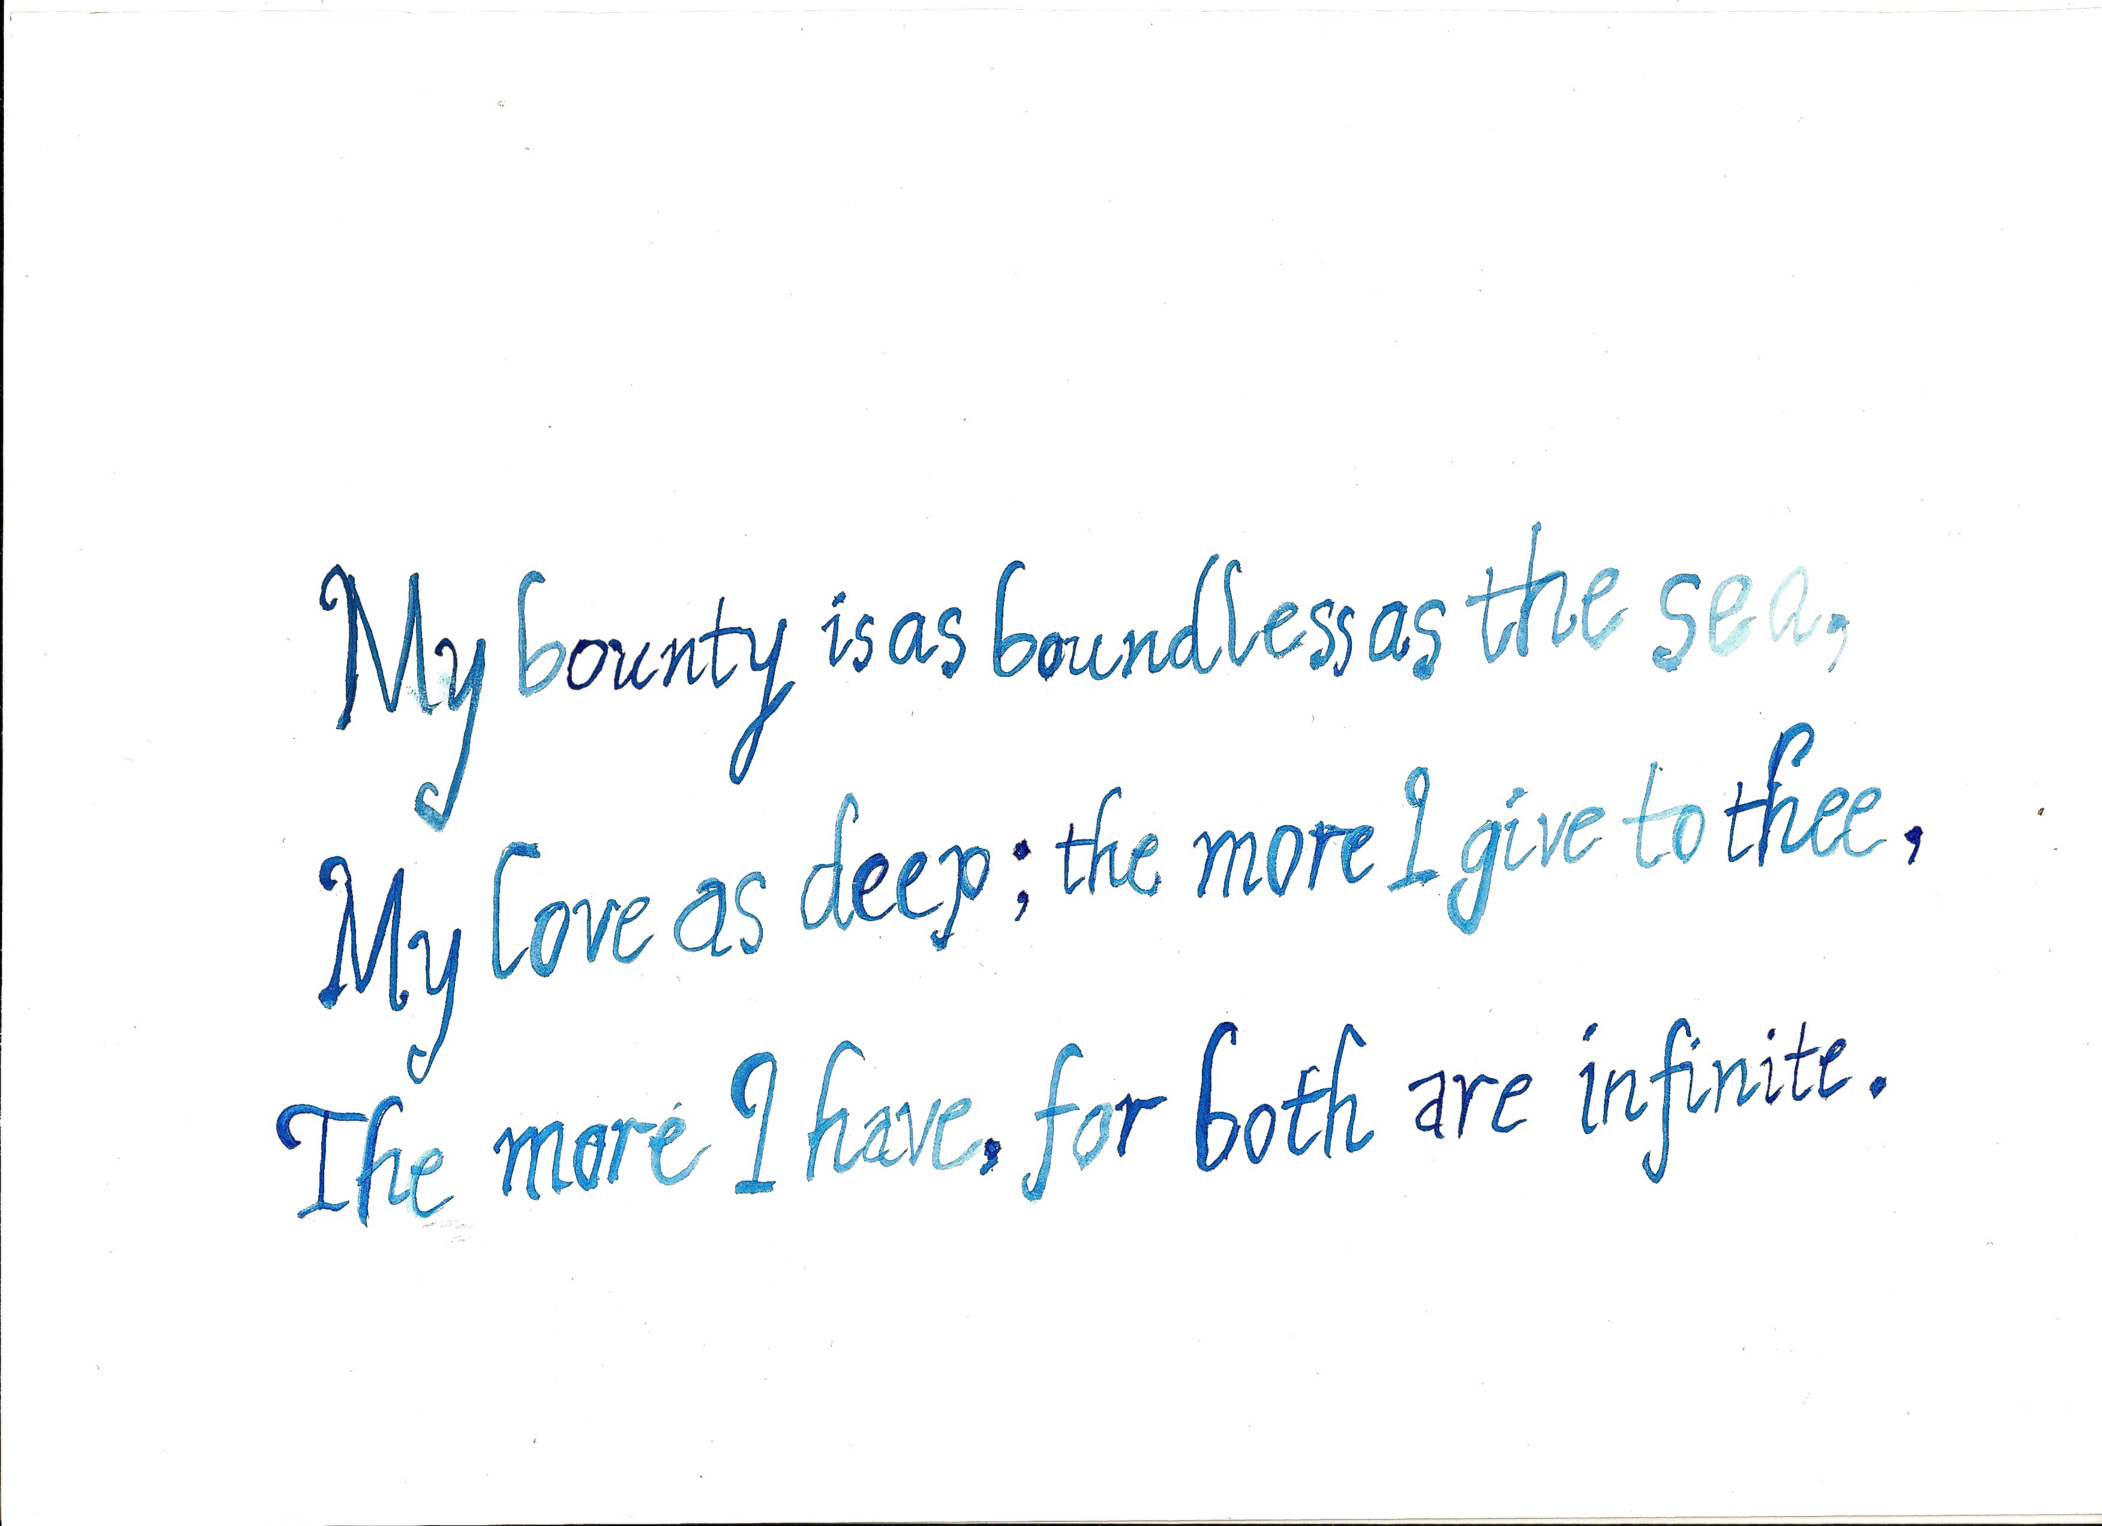 My bounty is as boundless as the sea,
My love as deep; the more I give to thee,
The more I have, for both are infinite.